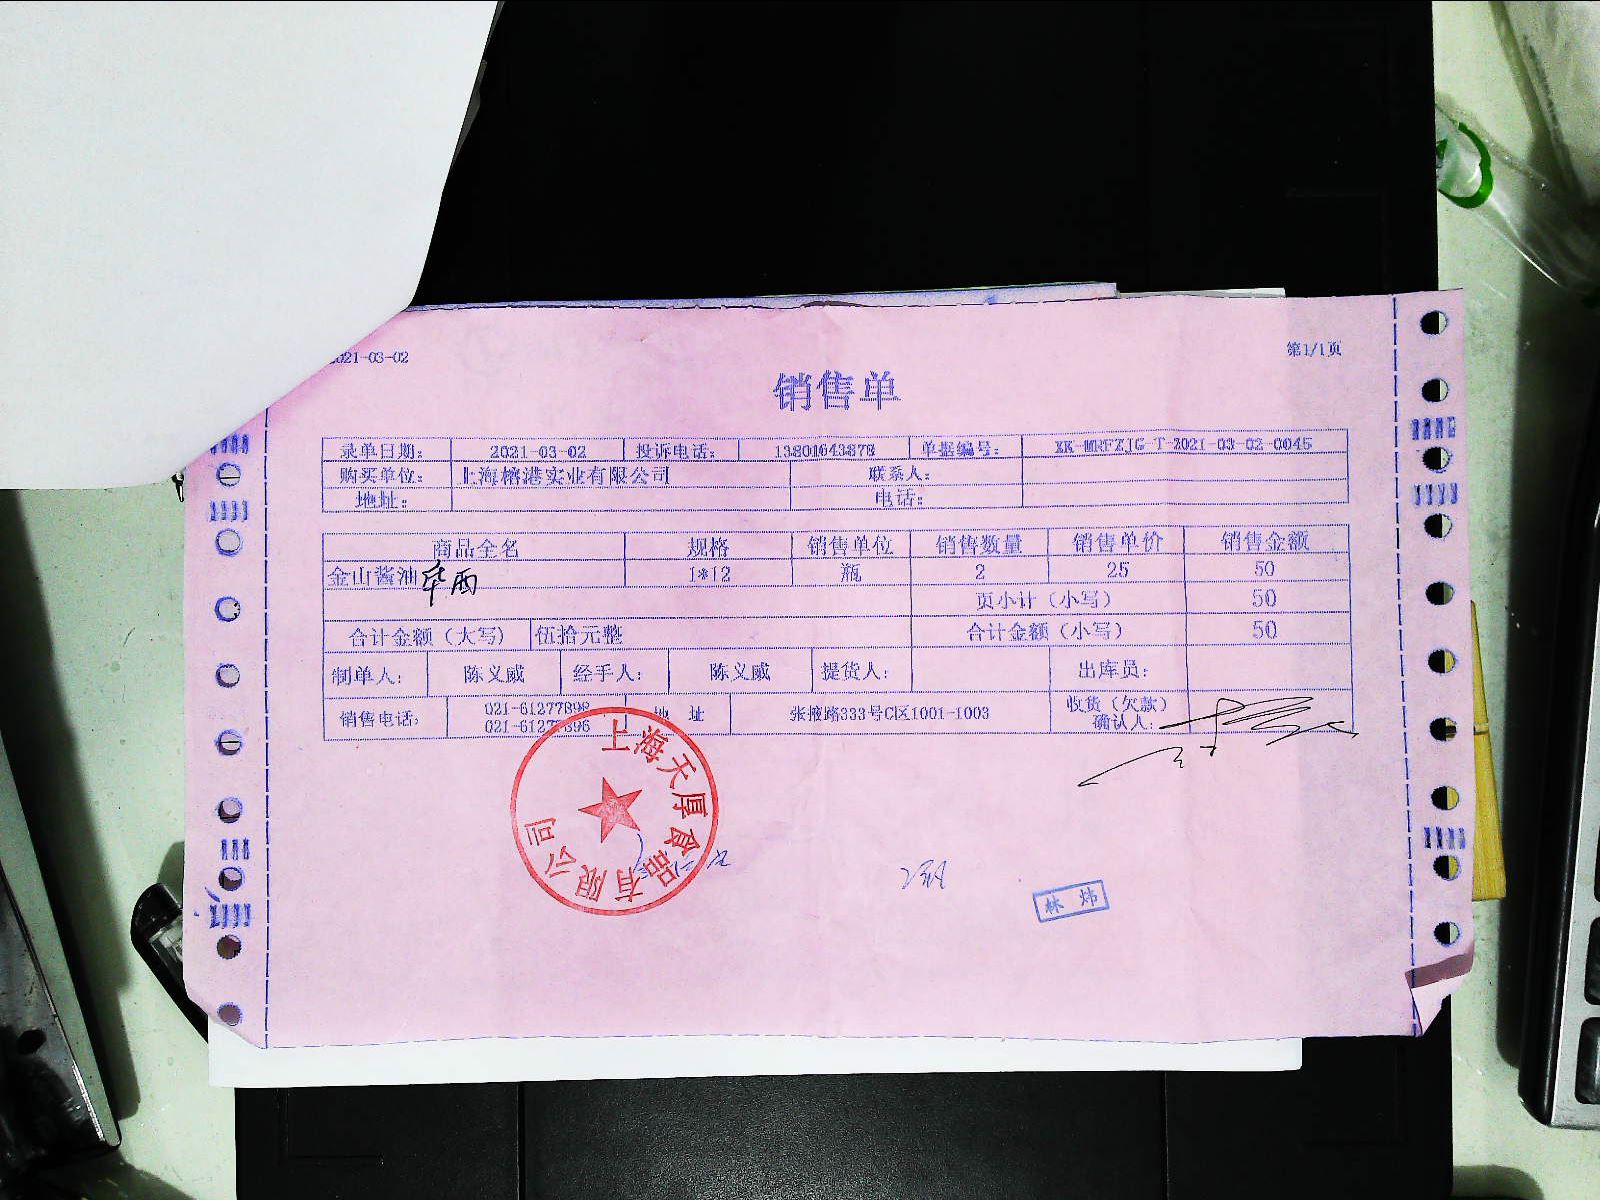 2021-03-02
第1/1页
销售单
录单日期： 2021-03-02 投诉电话： 13801643878 单据编号： XK-MRFZJG-T-2021-03-02-0045
购买单位： 上海榕港实业有限公司 联系人：
地址： 电话：
商品全名 规格 销售单位 销售数量 销售单价 销售金额
金山酱油 1*12 瓶 2 25 50
页小计（小写） 50
合计金额（大写） 伍拾元整 合计金额（小写） 50
制单人： 陈义威 经手人： 陈义威 提货人： 出库员：
销售电话： 021-61277898 地 址 张掖路333号C区1001-1003 收货（欠款）
021-61277896 确认人：
上海天厚食品有限公司
林 炜